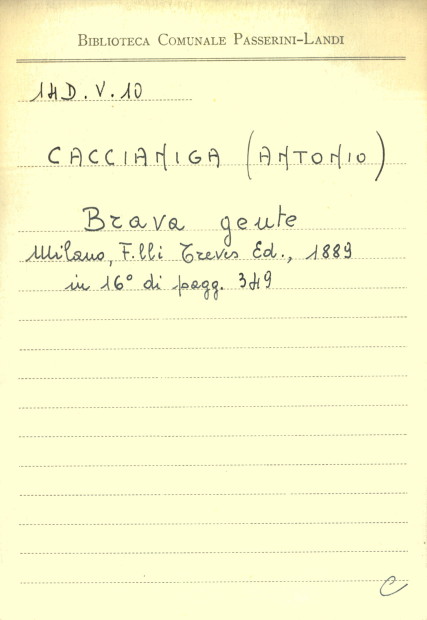 BIBLIOTECA COMUNALE PASSERINI-LANDI
14D.V.10
CACCIANIGA (ANTONIO)
Brava gente
Milano, F.lli Treves Ed., 1889
in 16° di pagg. 349
C